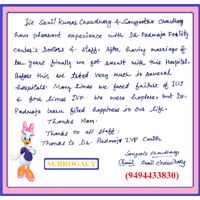 We Sunil Kumar Chowdhery & Sangeetha Chowdhery
have pleasent experience with Dr Padmaja Fertility
center's Doctors & Staff. After having marriage of
ten years finally we got result with this Hospital.
Before this we tried very much in several
hospitals. Many times we faced failure of IUI
& four times IVF. We were hopeless but Dr.
Padmaja mam filled happiness in our life.
Thanks Mam.
Thanks to all Staff.
Thanks to Dr. Padmaja IVF Centre
Sangeeta Chowdhery
(Sunil chowdhery)
SURROGACY
(9494433830)